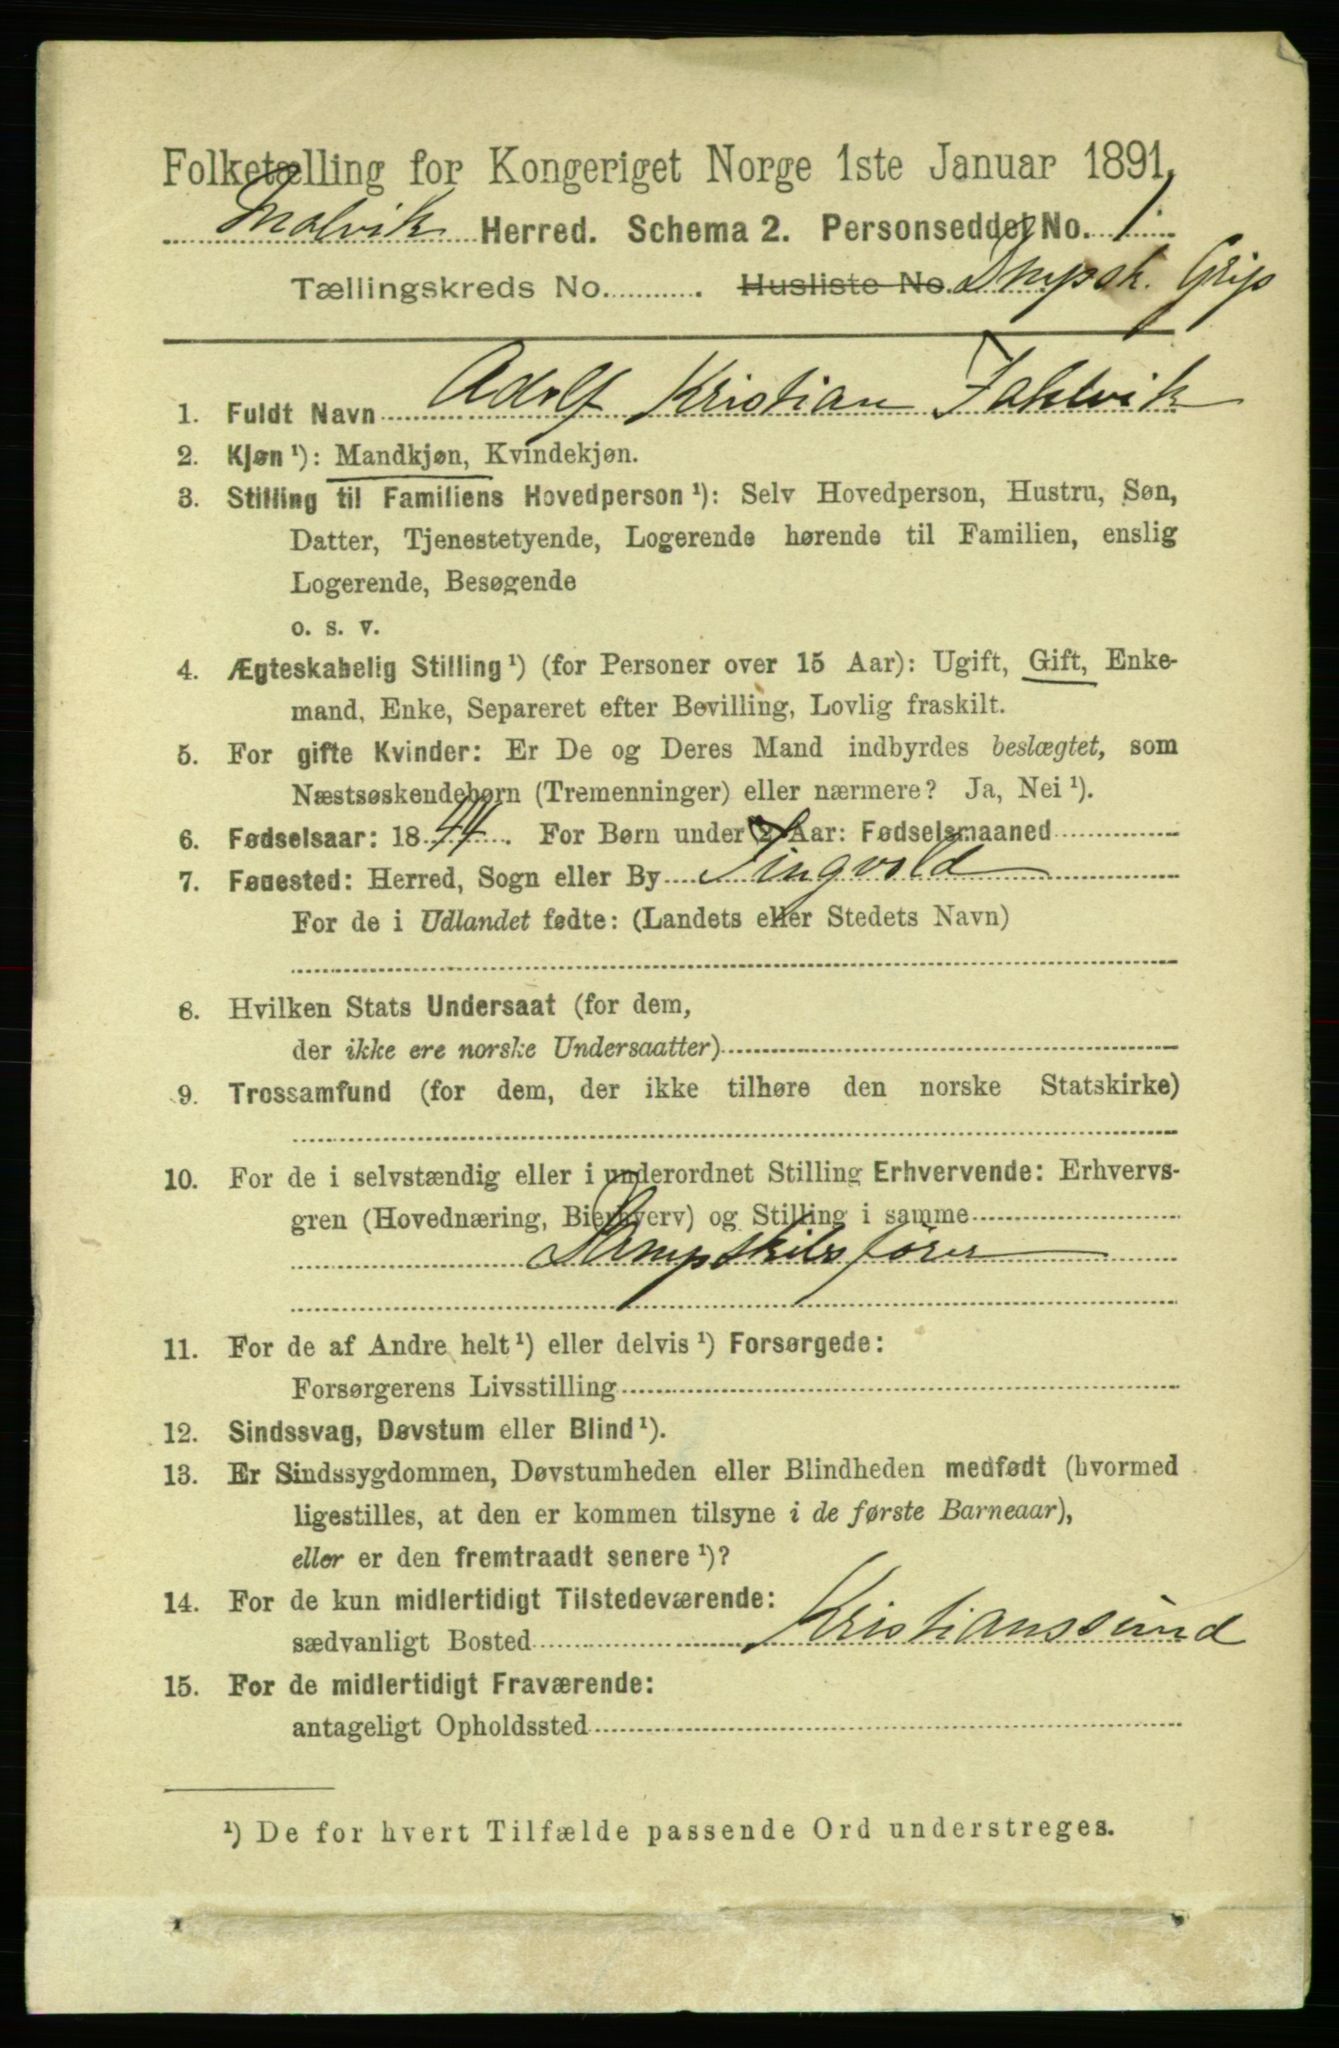 Folketælling for Kongeriget Norge 1ste Januar 1891.
Malvik Herred. Schema 2. Personseddel No. 1.
Tællingskreds No. Husliste No. Dmpsk. Grip
1. Fuldt Navn Adolf Kristian
2. Kjøn ¹): Mandkjøn, Kvindekjøn.
3. Stilling til Familiens Hovedperson ¹): Selv Hovedperson, Hustru, Søn,
Datter, Tjenestetyende, Logerende hørende til Familien, enslig
Logerende, Besøgende
o. s. v.
4. Ægteskabelig Stilling ¹) (for Personer over 15 Aar): Ugift, Gift, Enke-
mand, Enke, Separeret efter Bevilling, Lovlig fraskilt.
5. For gifte Kvinder: Er De og Deres Mand indbyrdes beslægtet, som
Næstsøskendebørn (Tremenninger) eller nærmere? Ja, Nei ¹).
6. Fødselsaar: 1844. For Børn under 2 Aar: Fødselsmaaned
7. Fødested: Herred, Sogn eller By Tingvold
For de i Udlandet fødte: (Landets eller Stedets Navn)
8. Hvilken Stats Undersaat (for dem,
der ikke ere norske Undersaatter)
9. Trossamfund (for dem, der ikke tilhøre den norske Statskirke)
10. For de i selvstændig eller i underordnet Stilling Erhvervende: Erhvervs-
gren (Hovednæring, Bierhverv) og Stilling i samme
Dampskibsfører
11. For de af Andre helt ¹) eller delvis ¹) Forsørgede:
Forsørgerens Livsstilling
12. Sindssvag, Døvstum eller Blind ¹).
13. Er Sindssygdommen, Døvstumheden eller Blindheden medfødt (hvormed
ligestilles, at den er kommen tilsyne i de første Barneaar),
eller er den fremtraadt senere ¹)?
14. For de kun midlertidigt Tilstedeværende:
sædvanligt Bosted Kristianssund
15. For de midlertidigt Fraværende:
antageligt Opholdssted
¹) De for hvert Tilfælde passende Ord understreges.